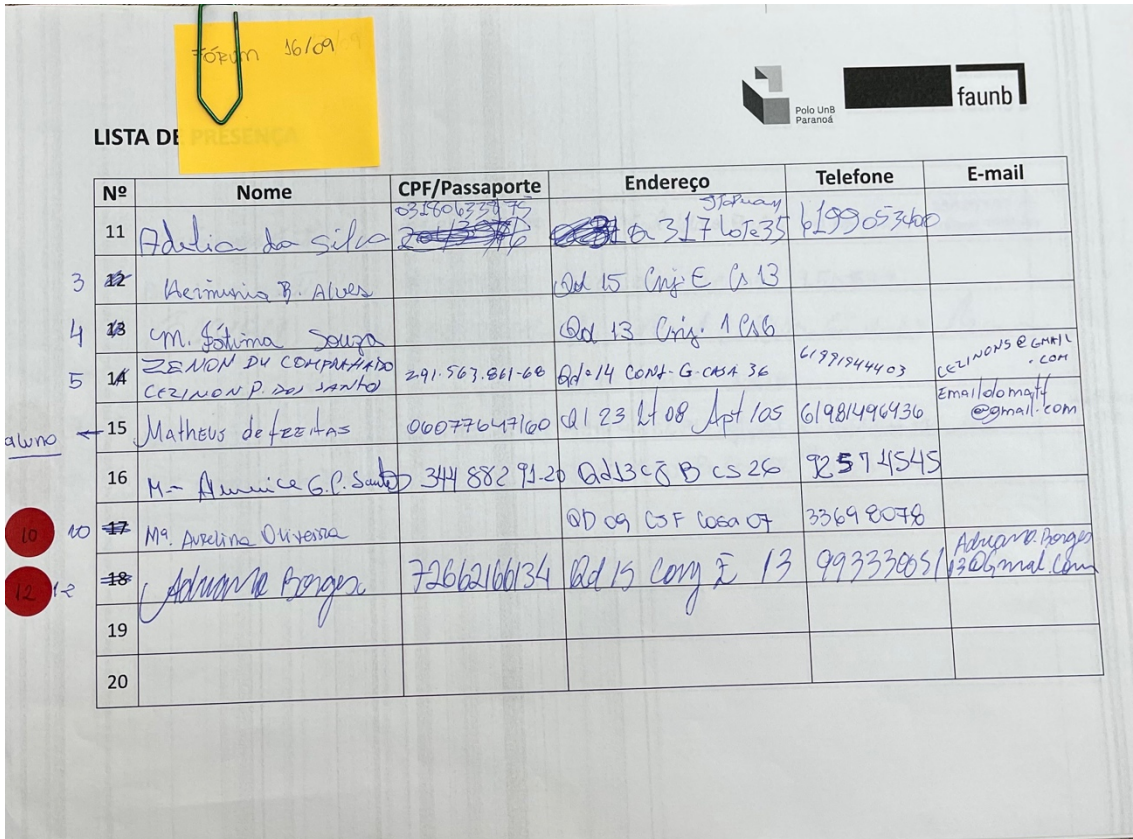 FÓRUM 16/09
Polo UnB
Paranoá
faunb
LISTA DE PRESENÇA
Nº Nome CPF/Passaporte Endereço Telefone E-mail
11 Adelia da silva Q 317 Lote 35 6199053400
3 12 Herminia B. Alves Qd 15 Cnj. E Cs 13
4 13 M. Fátima Souza Qd 13 Cnj. 1 Cs 6
5 14 ZENON DU COMPRAHADO CEZINON P. DOS SANTO 291.563.861-68 Qd. 14 CONJ-G-CASA 36 61991944403 CEZINONS@GMAIL.COM
aluno ← 15 Matheus de FREITAS 06077647160 Q1 23 Lt 08 Apt 105 61981496936 Emaildomatf@gmail.com
16 M- G.P. Santos 344 882 91-20 Qd 13 cj B cs 26 92574545
10 10 17 Mª. Aurelina Oliveira QD 09 CJ F Casa 07 33698078
12 12 18 Adriana Borges 72662166134 Qd 15 Conj E 13 Adriana.Borges
19
20